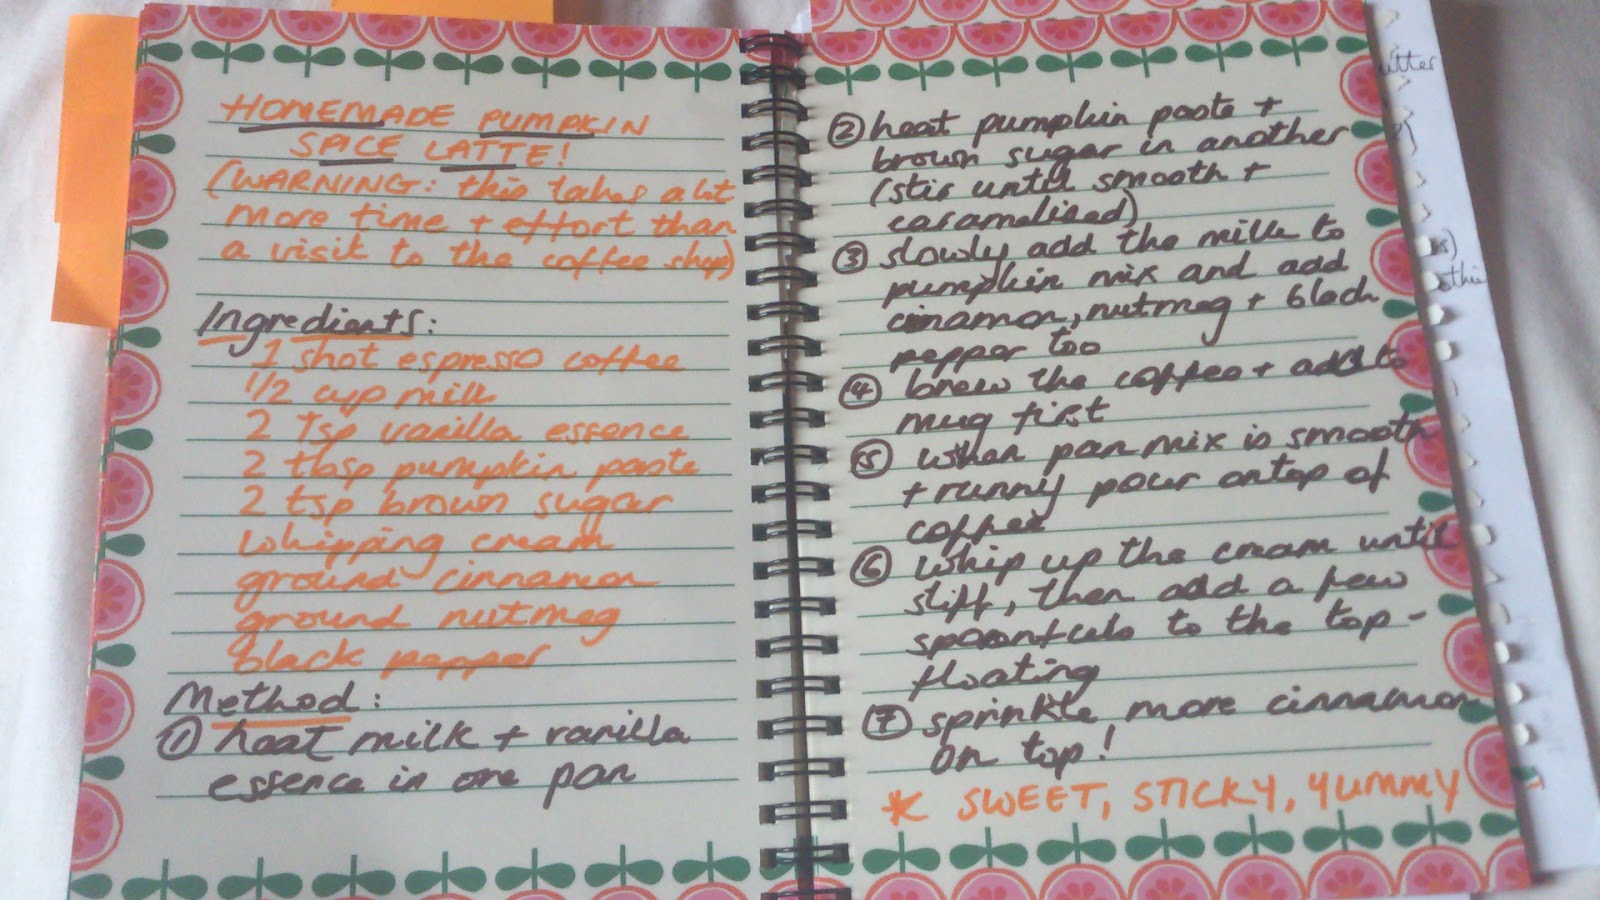 HOMEMADE PUMPKIN
SPICE LATTE!
(WARNING: this takes a lot
more time + effort than
a visit to the coffee shop)
Ingredients:
1 shot espresso coffee
1/2 cup milk
2 Tsp vanilla essence
2 tbsp pumpkin paste
2 tsp brown sugar
whipping cream
ground cinnamon
ground nutmeg
black pepper
Method:
① heat milk + vanilla
essence in one pan
② heat pumpkin paste +
brown sugar in another
(stir until smooth +
caramelised)
③ slowly add the milk to
pumpkin mix and add
cinnamon, nutmeg + black
pepper too
④ brew the coffee + add to
mug first
⑤ when pan mix is smooth
+ runny pour ontop of
coffee
⑥ whip up the cream until
stiff, then add a few
spoonfuls to the top -
floating
⑦ sprinkle more cinnamon
on top!
* SWEET, STICKY, YUMMY